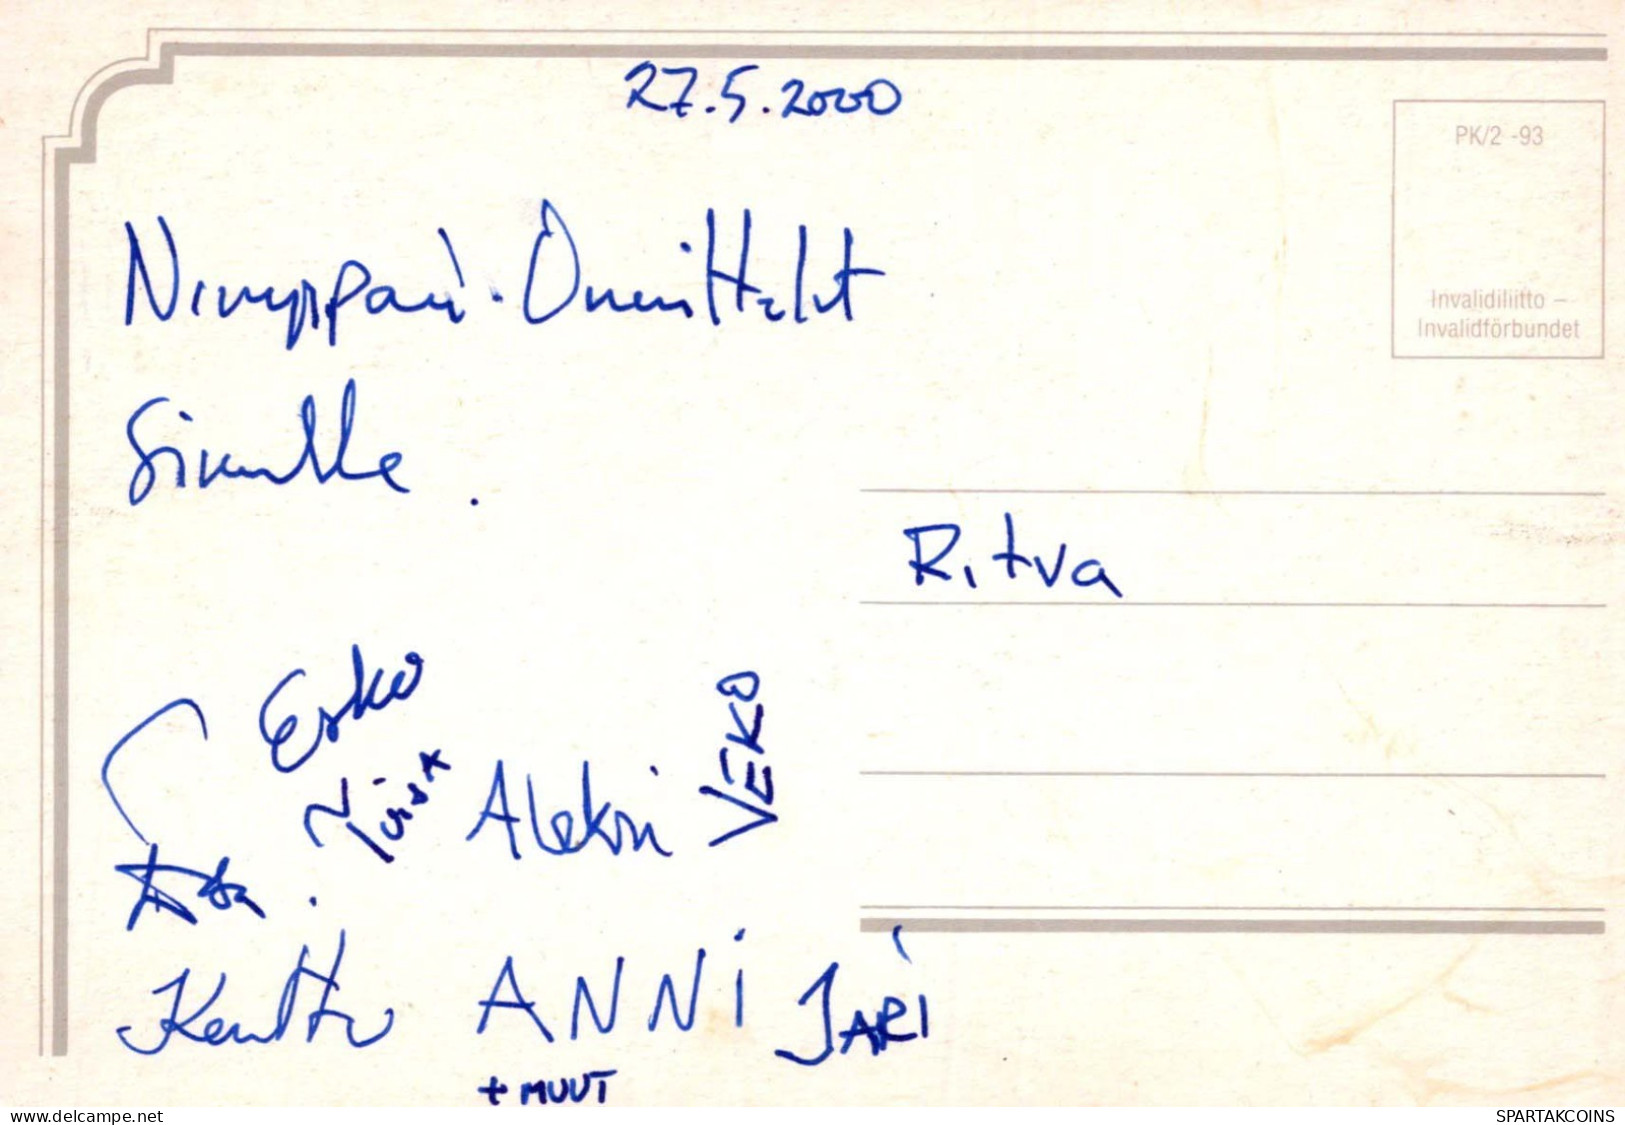 27.5.2000
PK/2 -93
Invalidiliitto –
Invalidförbundet
Nimppari - Onnittelut
Sinulle.
Ritva
Esko
Aleksi
VEKO
Kerttu
ANNi
JARi
+ MUUT
www.delcampe.net
SPARTAKCOINS